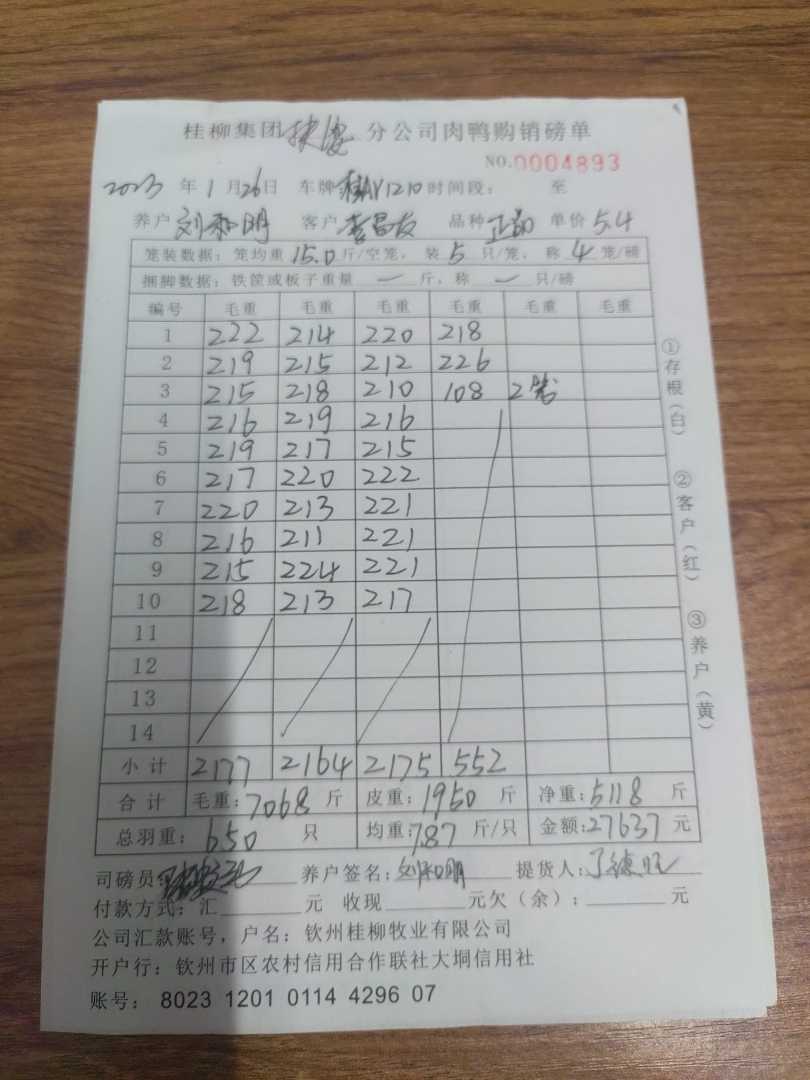 桂柳集团 分公司肉鸭购销磅单
NO.0004893
2023年1月26日 车牌 1210 时间段: 至
养户 刘和明 客户 李昌友 品种 单价 5.4
笼装数据: 笼均重 15.0 斤/空笼, 装 5 只/笼, 称 4 笼/磅
捆脚数据: 铁筐或板子重量 — 斤, 称 — 只/磅
编号 毛重 毛重 毛重 毛重 毛重 毛重
1 222 214 220 218
2 219 215 212 226
3 215 218 210 108 2笼
4 216 219 216
5 219 217 215
6 217 220 222
7 220 213 221
8 216 211 221
9 215 224 221
10 218 213 217
11
12
13
14
小计 2177 2164 2175 552
合计 毛重: 7068 斤 皮重: 1950 斤 净重: 5118 斤
总羽重: 650 只 均重: 7.87 斤/只 金额: 27637 元
司磅员: 养户签名: 刘和明 提货人:
付款方式: 汇 元 收现 元欠(余): 元
公司汇款账号, 户名: 钦州桂柳牧业有限公司
开户行: 钦州市区农村信用合作联社大垌信用社
账号: 8023 1201 0114 4296 07
①存根(白)
②客户(红)
③养户(黄)